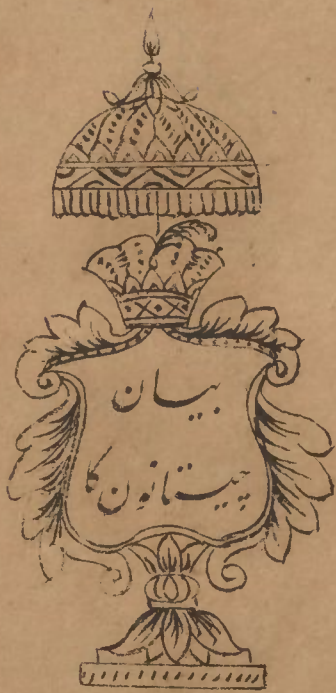 بیان
چیستانون کا